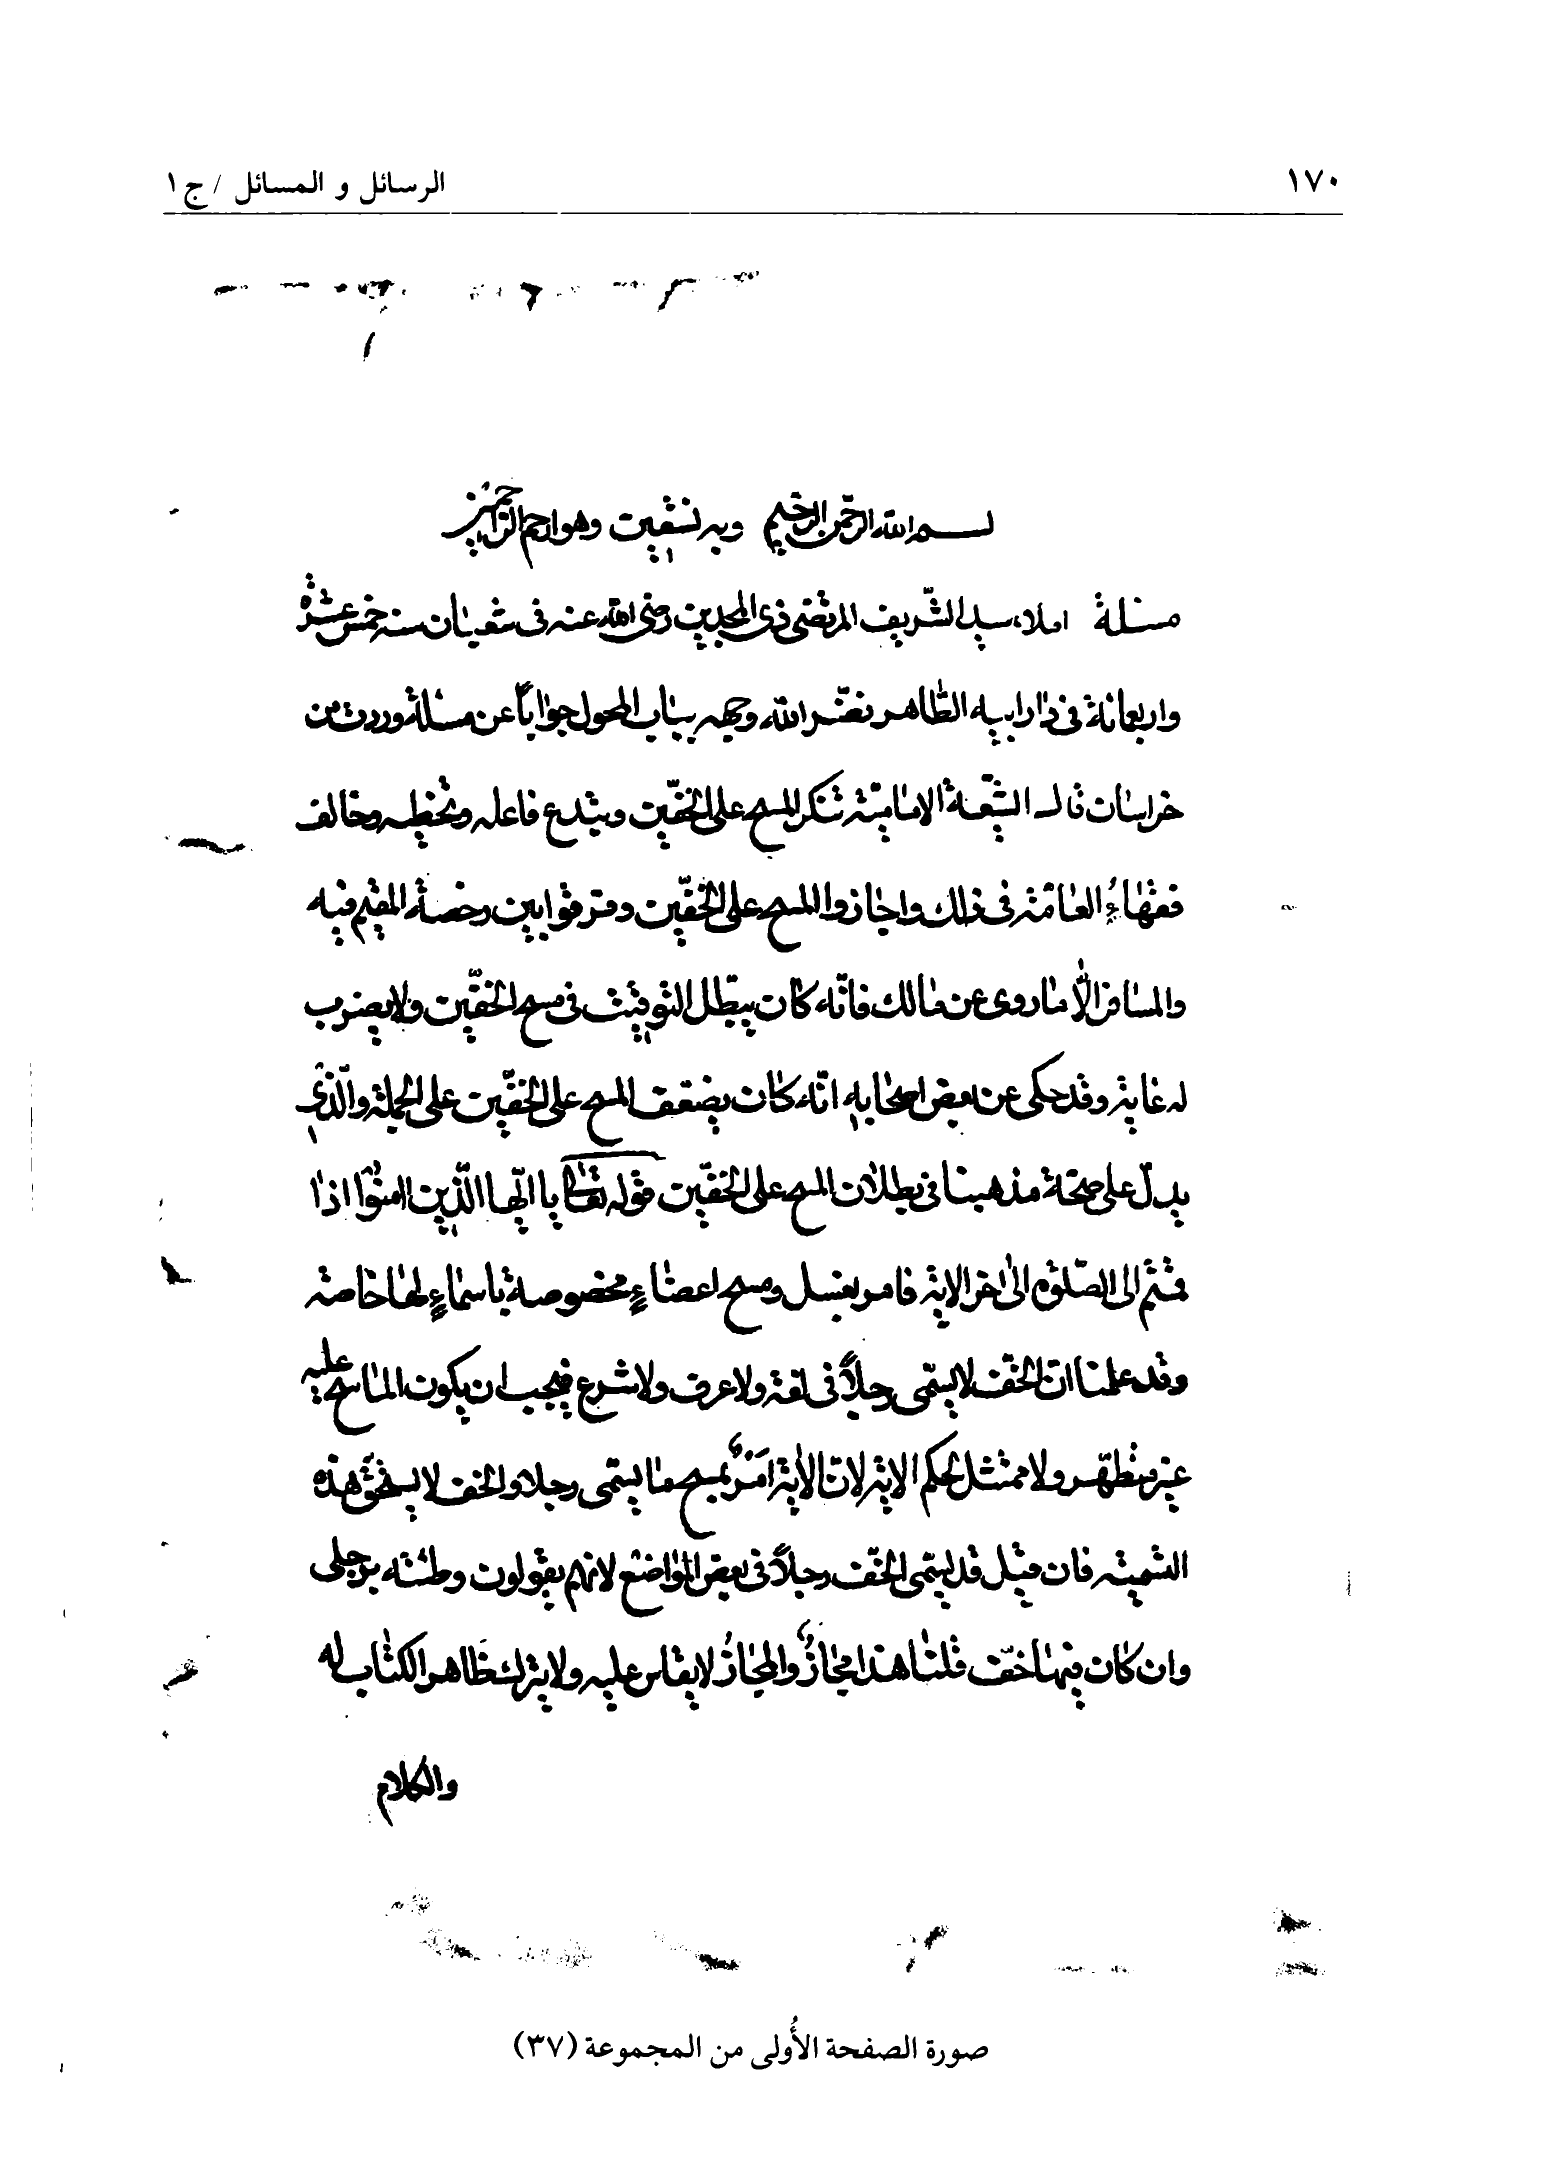 ١٧٠
الرسائل و المسائل / ج ١
بسم الله الرحمن الرحيم وبه نستعين وهو ارحم الراحمين
مسئلة املاء سيدنا الشّريف المرتضى ذى المجدين رضى الله عنه فى شعبان سنه خمس عشرة
واربعمائة فى دار ابيه الطّاهر نضّر الله وجهه بباب المحول جوابًا عن مسئلة وردت من
خراسان قال الشّيعة الاماميّة تنكر المسح على الخفّين ويبدع فاعله وتخطيه وخالف
فقهاءُ العامّة فى ذلك واجازوا المسح على الخفّين وفرقوا بين رخصة المقيم فيه
والمسافر الّا ما روى عن مالك فانّه كان يبطل التوقيت فى مسح الخفّين ولا يضرب
له غاية وقد حكى عن بعض اصحابه انّه كان يضعف المسح على الخفّين على الجملة والّذى
يدلّ على صحّة مذهبنا فى بطلان المسح على الخفّين قوله تعالى يا ايّها الّذين امنوا اذا
قمتم الى الصّلوة الى اخر الاية فامر بغسل ومسح اعضاءٍ مخصوصة باسماءٍ لها خاصّة
وقد علمنا ان الخفّ لا يسمّى رجلاً فى لغة ولا عرف ولا شرع فيجب ان يكون الماسح عليه
غير متطهّر ولا ممتثل لحكم الاية لانّ الاية امر بمسح ما يسمّى رجلا والخف لا يستحق هذه
التسمية فان قيل قد يسمّى الخفّ رجلاً فى بعض المواضع لانهم يقولون وطئته برجلى
وان كان فيها خفّ قلنا هذا مجازٌ والمجازُ لا يقاس عليه ولا يترك ظاهر الكتاب له
والكلام
صورة الصفحة الأُولى من المجموعة (٣٧)